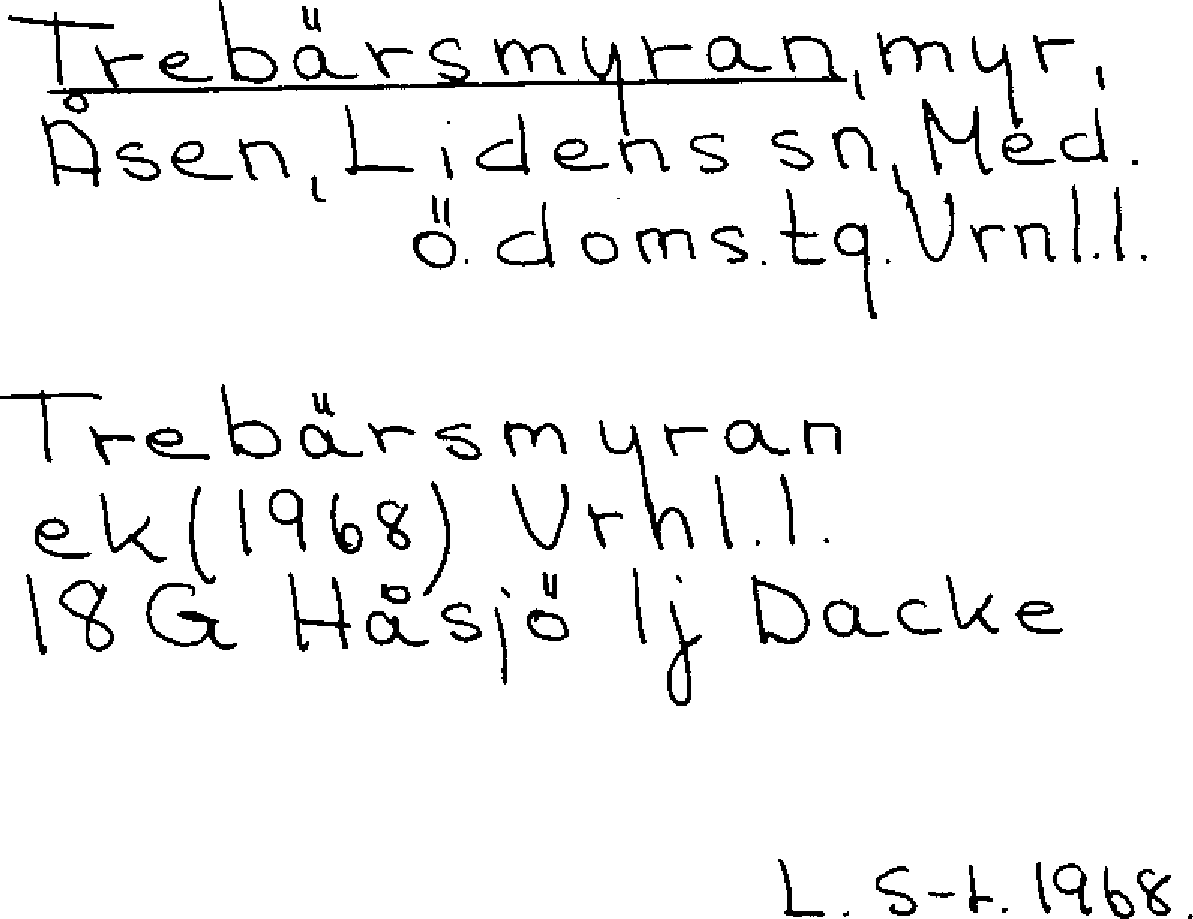 Trebärsmyran, myr,
Åsen, Lidens sn, Med.
ö. doms. tg. Vrnl.l.
Trebärsmyran
ek (1968) Vrnl.l.
18 G Håsjö 1j Dacke
L. S-t. 1968.